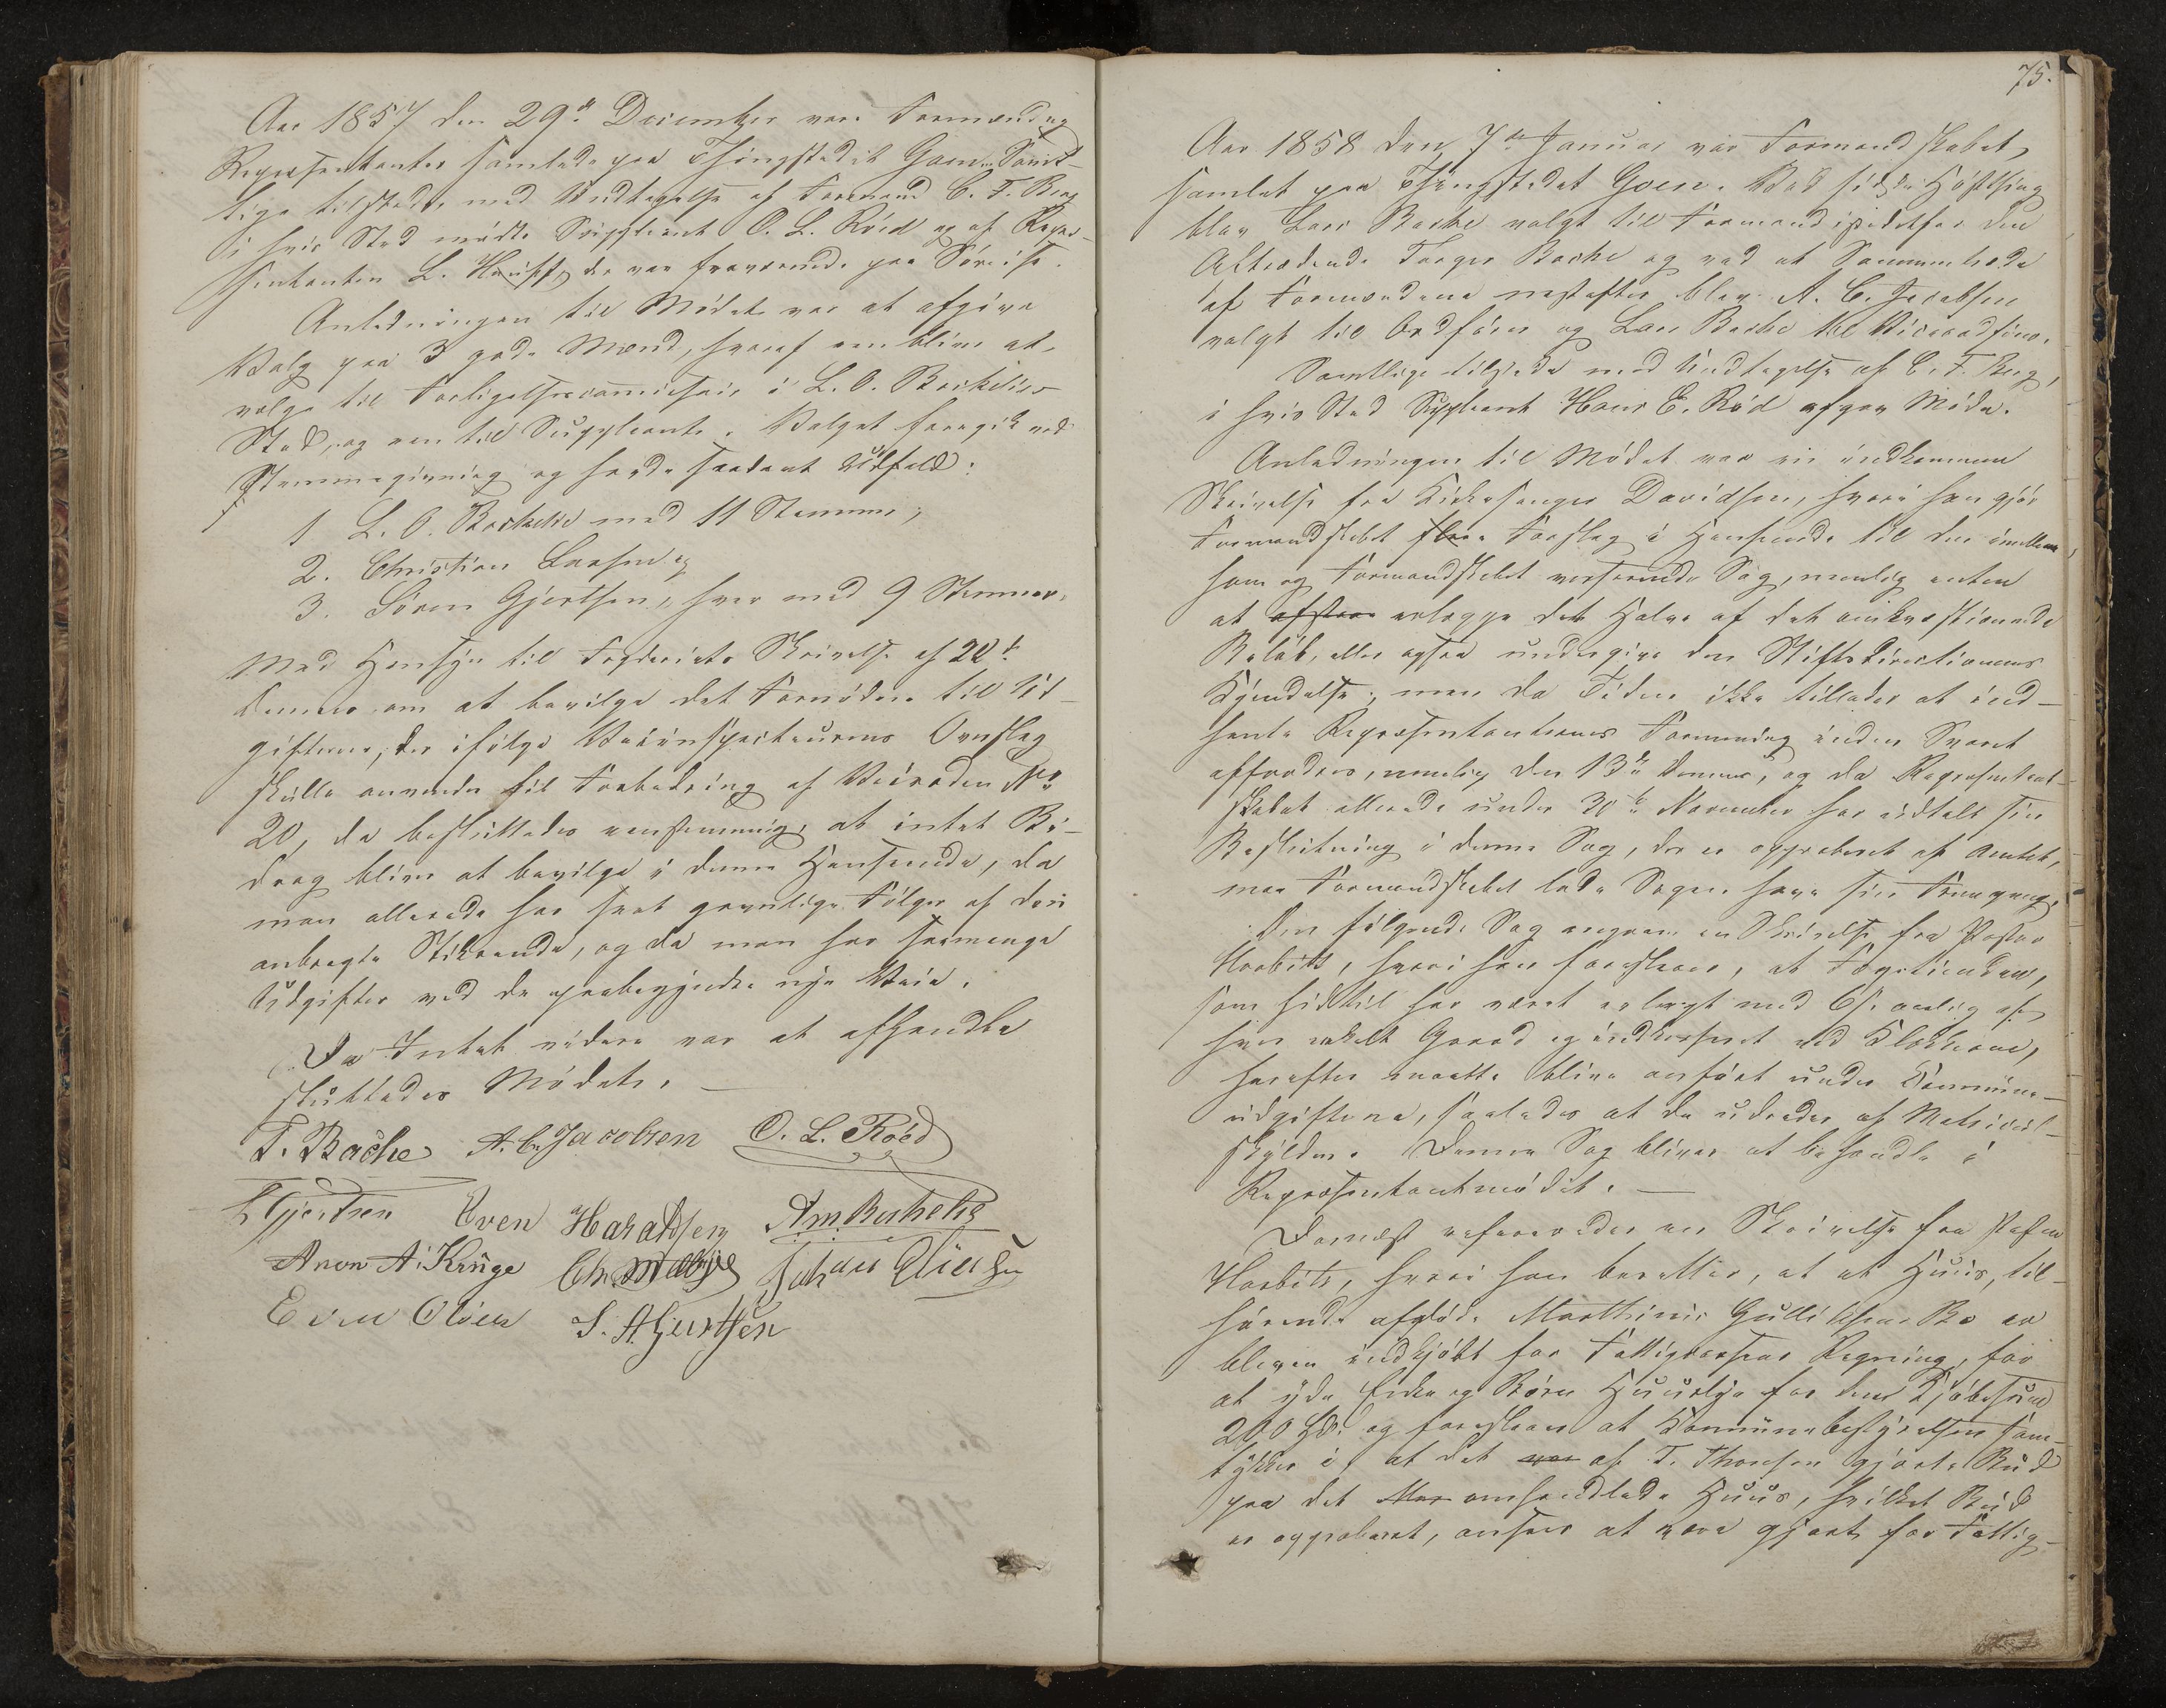 Aar 1857 den 29de December vare Formænd og
Repræsentanter samlede paa Thingstedet Gaen. Samt-
lige tilstede, med Undtagelse af Formand C. F. Berg
i hvis Sted mødte Suppleant O. L. Röed og af Repræ-
sentanten L. Hauff, der var fraværende paa Söreise.
Anledningen til Mödet var at afgive
Valg paa 3 gode Mænd, hvoraf een bliver at
vælge til Forligelsescommissair i L. O. Bakkelies
Sted, og een til Suppleant. Valget foregik ved
Stemmegivning og havde saadant Udfald:
1 L. O. Bakkelie med 11 Stemmer,
2. Christian Larsen og
3. Sören Gjertsen, hver med 9 Stemmer.
Med Hensyn til Fogderiets Skrivelse af 22de
dennes om at bevilge det Fornödne til Ud-
gifterne, der ifølge Veiinspecteurens Overslag
skulle anvendes til Forbedring af Veiroden No
20, da besluttedes eenstemmig, at intet Bi-
drag bliver at bevilge i denne Henseende, da
man allerede har havt gavnlige Fölger af den
anbragte Stikrende, og da man har saamange
Udgifter ved de paabegyndte nye Veie.
Da Intet videre var at afhandle
sluttedes Mödet. —
T. Bache A. C. Jacobsen O. L. Röed
L Gjertsen Even Haraldsen Am Backelie
Aron A. Kruge Chr. Johan Olsen
Even Olsen S. A. Gjertsen
75.
Aar 1858 den 7de Januar var Formandskabet
samlet paa Thingstedet Goen. Ved sidste Höstthing
blev Lars Bache valgt til Formand istedetfor den
Aftrædende Torger Bache og ved at Sammentræde
af Formændene næstefter blev A. C. Jacobsen
valgt til Ordförer og Lars Bache til Viceordförer.
Samtlige tilstede med Undtagelse af C. F. Berg,
i hvis Sted Suppleant Hans E. Röd afgav Möde.
Anledningen til Mödet var en indkommen
Skrivelse fra Kirkesanger Davidsen, hvori han gjör
Formandskabet flere Forslag i Henseende til den imellem
ham og Formandskabet verserende Sag, nemlig enten
at afstaae erlægge det Halve af det omkvæstionerede
Belöb, eller ogsaa undergive den Stiftsdirectionens
Kjendelse; men da Tiden ikke tillader at ind-
hente Repræsentanternes Formening inden Svaret
affordres, nemlig den 13de dennes, og da Repræsentant-
skabet allerede under 30te November har udtalt sin
Beslutning i denne Sag, der er approberet af Amtet,
maa Formandskabet lade Sagen have sin Fremgang.
Den fölgende Sag angaaer en Skrivelse fra Pastor
Horbitz, hvori han foreslaaer, at Fogetienden,
som hidtil har været erlagt med 6 s. aarlig af
hver enkelt Gaard og indkasseret ved Klokkerne,
herefter maatte blive anfört under Kommune-
udgifterne, saaledes at de udredes af Matricul-
skylden. Denne Sag bliver at behandle i
Repræsentantmödet. —
Dernæst refereredes en Skrivelse fra Pastor
Horbitz, hvori han beretter, at et Huus, til-
hörende afdöde Marthinius Gulliksen Bö er
bleven indkjöbt for Fattigkassens Regning, for
at yde Enke og Börn Huuslye for den Kjöbesum
200 Spd. og foreslaaer at Kommunebestyrelsen sam-
tykker i, at det var af T. Thorsen gjorte Bud
paa det omhandlede Huus, hvilket Bud
er approberet, ansees at være gjort for Fattig-